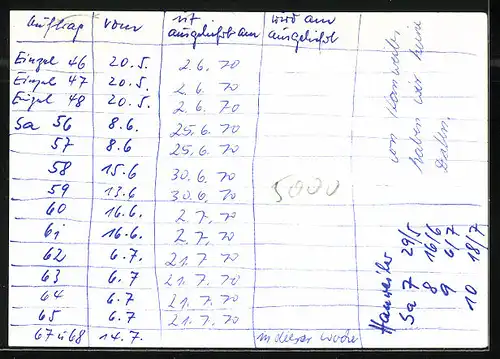 Auftrag vom ist ausgeliefert am wird am ausgeliefert
Einzel 46 20.5. 2.6.70
Einzel 47 20.5. 2.6.70
Einzel 48 20.5. 2.6.70
Sa 56 8.6. 25.6.70
57 8.6 25.6.70
58 15.6 30.6.70
59 13.6 30.6.70 5000
60 16.6. 2.7.70
61 16.6. 2.7.70
62 6.7. 21.7.70
63 6.7 21.7.70
64 6.7 21.7.70
65 6.7 21.7.70
67 u 68 14.7. in dieser Woche
von Hanweiler
haben wir keine
Daten.
Hanweiler
Sa 7 29/5
8 16/6
9 6/7
10 18/7